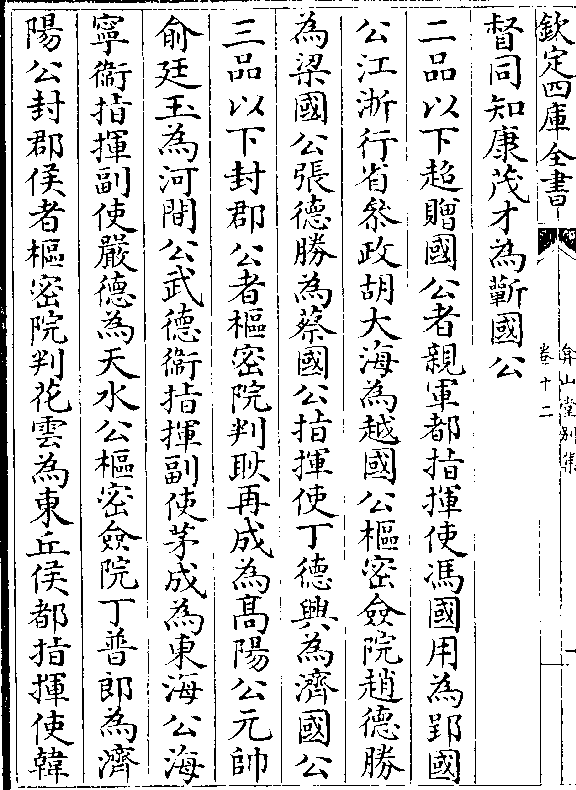 欽定四庫全書
弇山堂別集
卷十二
督同知康茂才為蘄國公
二品以下超贈國公者親軍都指揮使馮國用為郢國
公江浙行省叅政胡大海為越國公樞密僉院趙德勝
為梁國公張德勝為蔡國公指揮使丁德興為濟國公
三品以下封郡公者樞密院判耿再成為高陽公元帥
俞廷玉為河間公武德衞指揮副使茅成為東海公海
寧衞指揮副使嚴德為天水公樞密僉院丁普郎為濟
陽公封郡侯者樞密院判花雲為東丘侯都指揮使韓